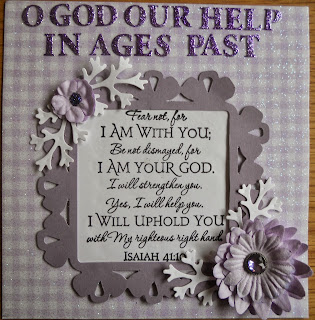 O GOD OUR HELP
IN AGES PAST
Fear not, for
I AM WITH YOU;
Be not dismayed, for
I AM YOUR GOD.
I will strengthen you.
Yes, I will help you.
I WILL UPHOLD YOU
with My righteous right hand.
ISAIAH 41:10